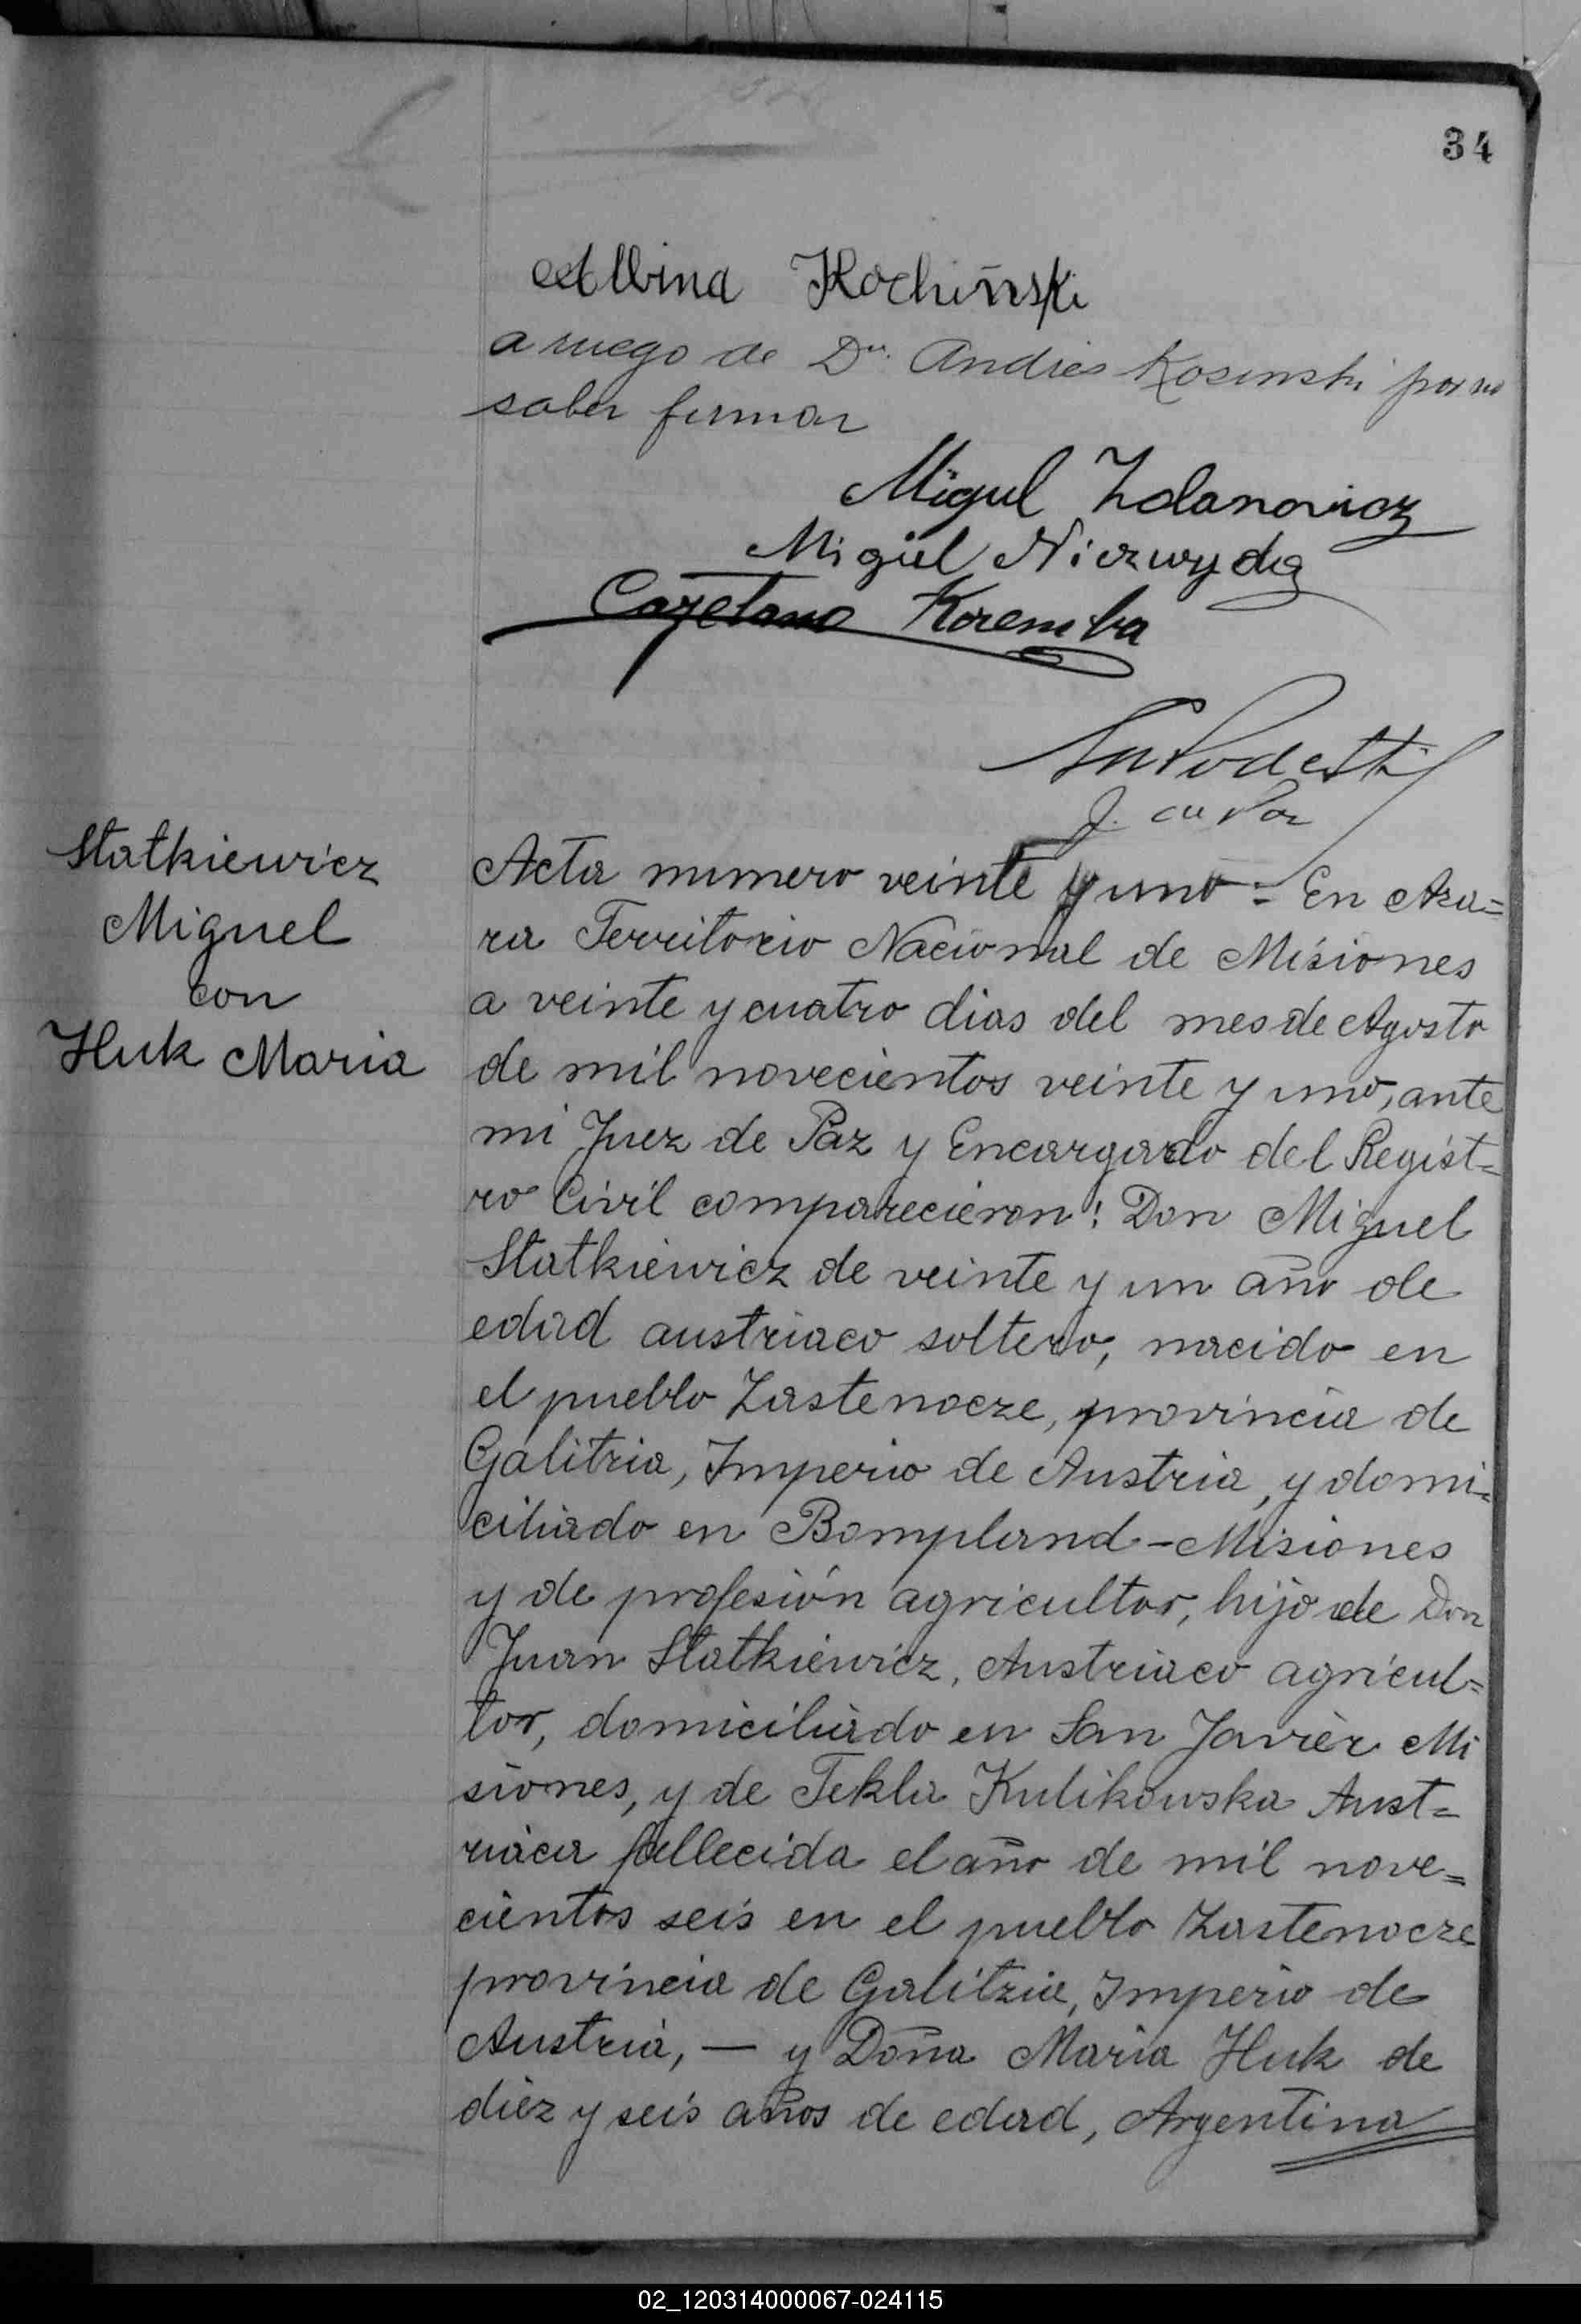 34
Albina Kochiński
a ruego de Dn. Andres Kosinski por no
saber firmar
Migul Zdanovicz
Migúel Nierwyda
Cayetano Koremba
J. de Paz
Statkiewicz
Miguel
con
Huk Maria
Acta numero veinte y uno = En Aza=
ra Territorio Nacional de Misiones
a veinte y cuatro dias del mes de Agosto
de mil novecientos veinte y uno, ante
mi Juez de Paz y Encargado del Regist=
ro Civil comparecieron: Don Miguel
Statkiewicz de veinte y un año de
edad austriaco soltero, nacido en
el pueblo Zastenocze, provincia de
Galitzia, Imperio de Austria, y domi=
ciliado en Bompland - Misiones
y de profesión agricultor, hijo de Don
Juan Statkiewicz, Austriaco agricul=
tor, domiciliado en San Javier Mi
siones, y de Tekla Kulikowska Aust=
riaca fallecida el año de mil nove=
cientos seis en el pueblo Zastenocze
provincia de Galitzia, Imperio de
Austria, — y Doña Maria Huk de
diez y seis años de edad, Argentina
02_120314000067-024115